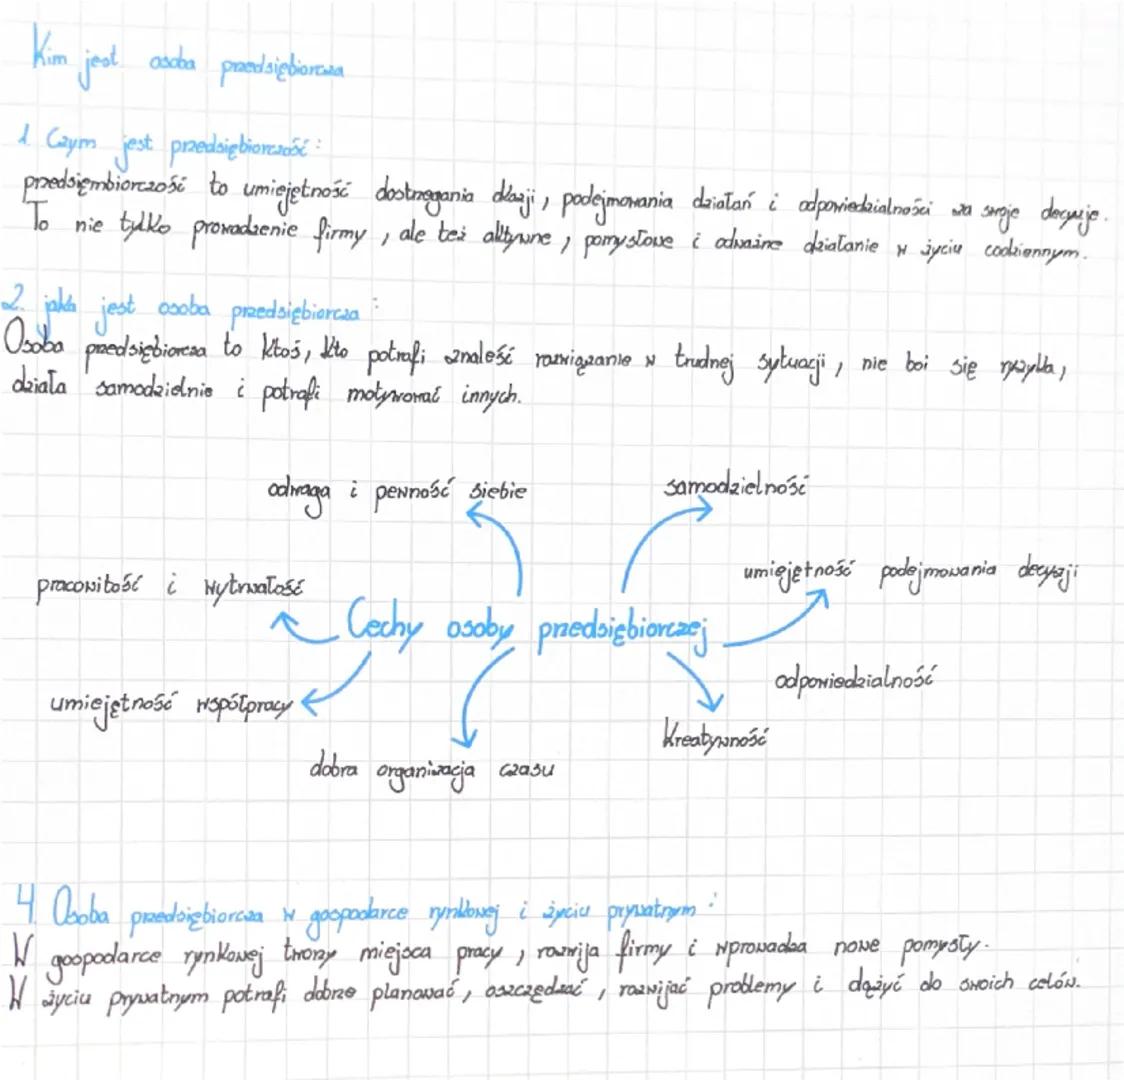 Kim jest osoba przedsiębiorcza
1. Czym jest przedsiębiorczość:
przedsiembiorczość to umiejętność dostrzegania okazji, podejmowania działań i odpowiedzialności za swoje decyzje.
To nie tylko prowadzenie firmy, ale też aktywne, pomysłowe i odważne działanie w życiu codziennym.
2. jaka jest osoba przedsiębiorcza:
Osoba przedsiębiorcza to ktoś, kto potrafi znaleść rozwiązanie w trudnej sytuacji, nie boi się ryzyka,
działa samodzielnie i potrafi motywować innych.
odwaga i pewność siebie
samodzielność
pracowitość i wytrwałość
umiejętność podejmowania decyzji
Cechy osoby przedsiębiorczej
odpowiedzialność
umiejętność współpracy
kreatywność
dobra organizacja czasu
4. Osoba przedsiębiorcza w gospodarce rynkowej i życiu prywatnym:
W gospodarce rynkowej tworzy miejsca pracy, rozwija firmy i wprowadza nowe pomysły.
W życiu prywatnym potrafi dobrze planować, oszczędzać, rozwijać problemy i dążyć do swoich celów.